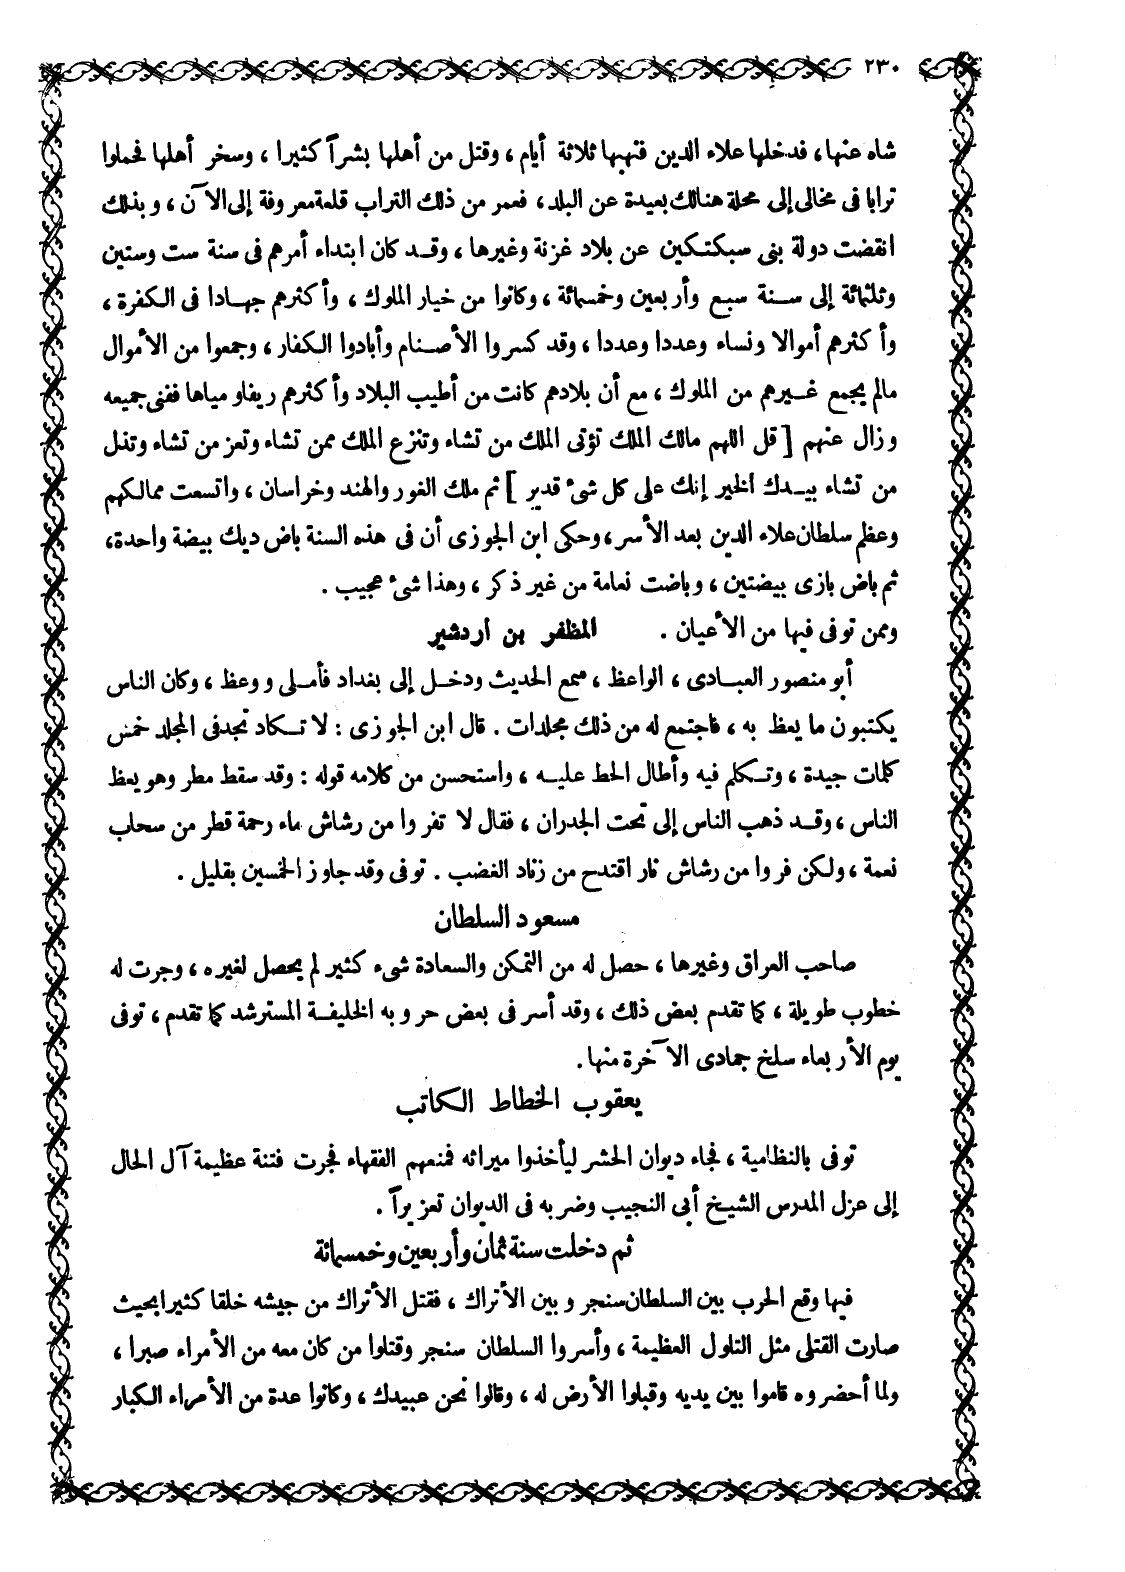 ٢٣٠
شاه عنها، فدخلها علاء الدين فنهبها ثلاثة أيام، وقتل من أهلها بشرآ كثيرا، وسخر أهلها فحملوا
ترابا فى مخالى إلى محلة هنالك بعيدة عن البلد، فعمر من ذلك التراب قلعة معروفة إلى الآن، وبذلك
انقضت دولة بنى سبكتكين عن بلاد غزنة وغيرها، وقد كان ابتداء أمرهم فى سنة ست وستين
وثلثمائة إلى سنة سبع وأربعين وخمسمائة، وكانوا من خيار الملوك، وأكثرهم جهادا فى الكفرة،
وأكثرهم أموالا ونساء وعددا وعددا، وقد كسروا الأصنام وأبادوا الكفار، وجمعوا من الأموال
مالم يجمع غيرهم من الملوك، مع أن بلادهم كانت من أطيب البلاد وأكثرهم ريفاو مياها ففنى جميعه
وزال عنهم [ قل اللهم مالك الملك تؤتى الملك من تشاء وتنزع الملك ممن تشاء وتعز من تشاء وتذل
من تشاء بيدك الخير إنك على كل شىء قدير ] ثم ملك الغور والهند وخراسان، واتسعت ممالكهم
وعظم سلطان علاء الدين بعد الأسر، وحكى ابن الجوزى أن فى هذه السنة باض ديك بيضة واحدة،
ثم باض بازى بيضتين، وباضت نعامة من غير ذكر، وهذا شىء عجيب.
وممن توفى فيها من الأعيان. المظفر بن أردشير
أبو منصور العبادى، الواعظ، سمع الحديث ودخل إلى بغداد فأملى ووعظ، وكان الناس
يكتبون ما يعظ به، فاجتمع له من ذلك مجلدات. قال ابن الجوزى: لا تكاد تجدفى المجلد خمس
كلمات جيدة، وتكلم فيه وأطال الحط عليه، واستحسن من كلامه قوله: وقد سقط مطر وهو يعظ
الناس، وقد ذهب الناس إلى تحت الجدران، فقال لا تفروا من رشاش ماء رحمة قطر من سحاب
نعمة، ولكن فروا من رشاش نار اقتدح من زناد الغضب. توفى وقد جاوز الخمسين بقليل.
مسعود السلطان
صاحب العراق وغيرها، حصل له من التمكن والسعادة شىء كثير لم يحصل لغيره، وجرت له
خطوب طويلة، كما تقدم بعض ذلك، وقد أسر فى بعض حروبه الخليفة المسترشد كما تقدم، توفى
يوم الأربعاء سلخ جمادى الآخرة منها.
يعقوب الخطاط الكاتب
توفى بالنظامية، فجاء ديوان الحشر ليأخذوا ميراثه فمنعهم الفقهاء فجرت فتنة عظيمة آل الحال
إلى عزل المدرس الشيخ أبى النجيب وضربه فى الديوان تعزيرآ.
ثم دخلت سنة ثمان وأربعين وخمسمائة
فيها وقع الحرب بين السلطان سنجر وبين الأتراك، فقتل الأتراك من جيشه خلقا كثيرا بحيث
صارت القتلى مثل التلول العظيمة، وأسروا السلطان سنجر وقتلوا من كان معه من الأمراء صبرا،
ولما أحضروه قاموا بين يديه وقبلوا الأرض له، وقالوا نحن عبيدك، وكانوا عدة من الأمراء الكبار